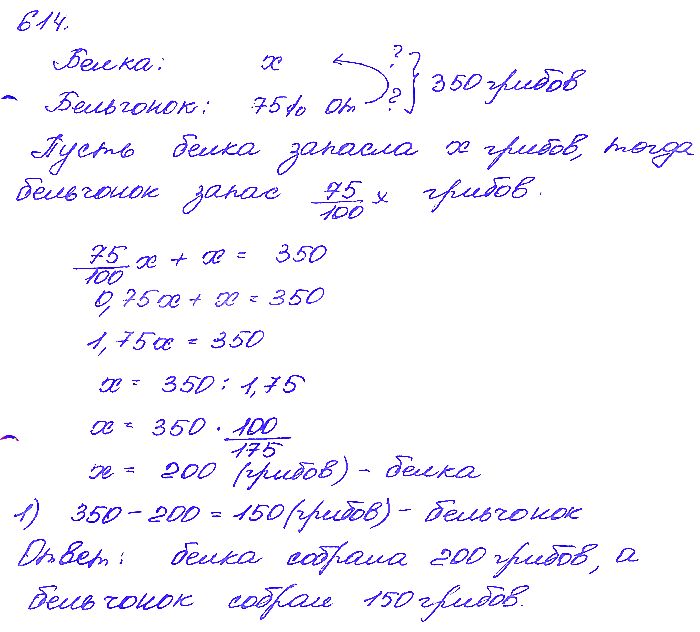 614.
Белка: x ?
Бельчонок: 75% от ? } 350 грибов
Пусть белка запасла x грибов, тогда
бельчонок запас 75/100 x грибов.
75/100 x + x = 350
0,75x + x = 350
1,75x = 350
x = 350 : 1,75
x = 350 · 100/175
x = 200 (грибов) - белка
1) 350 - 200 = 150 (грибов) - бельчонок
Ответ: белка собрала 200 грибов, а
бельчонок собрал 150 грибов.